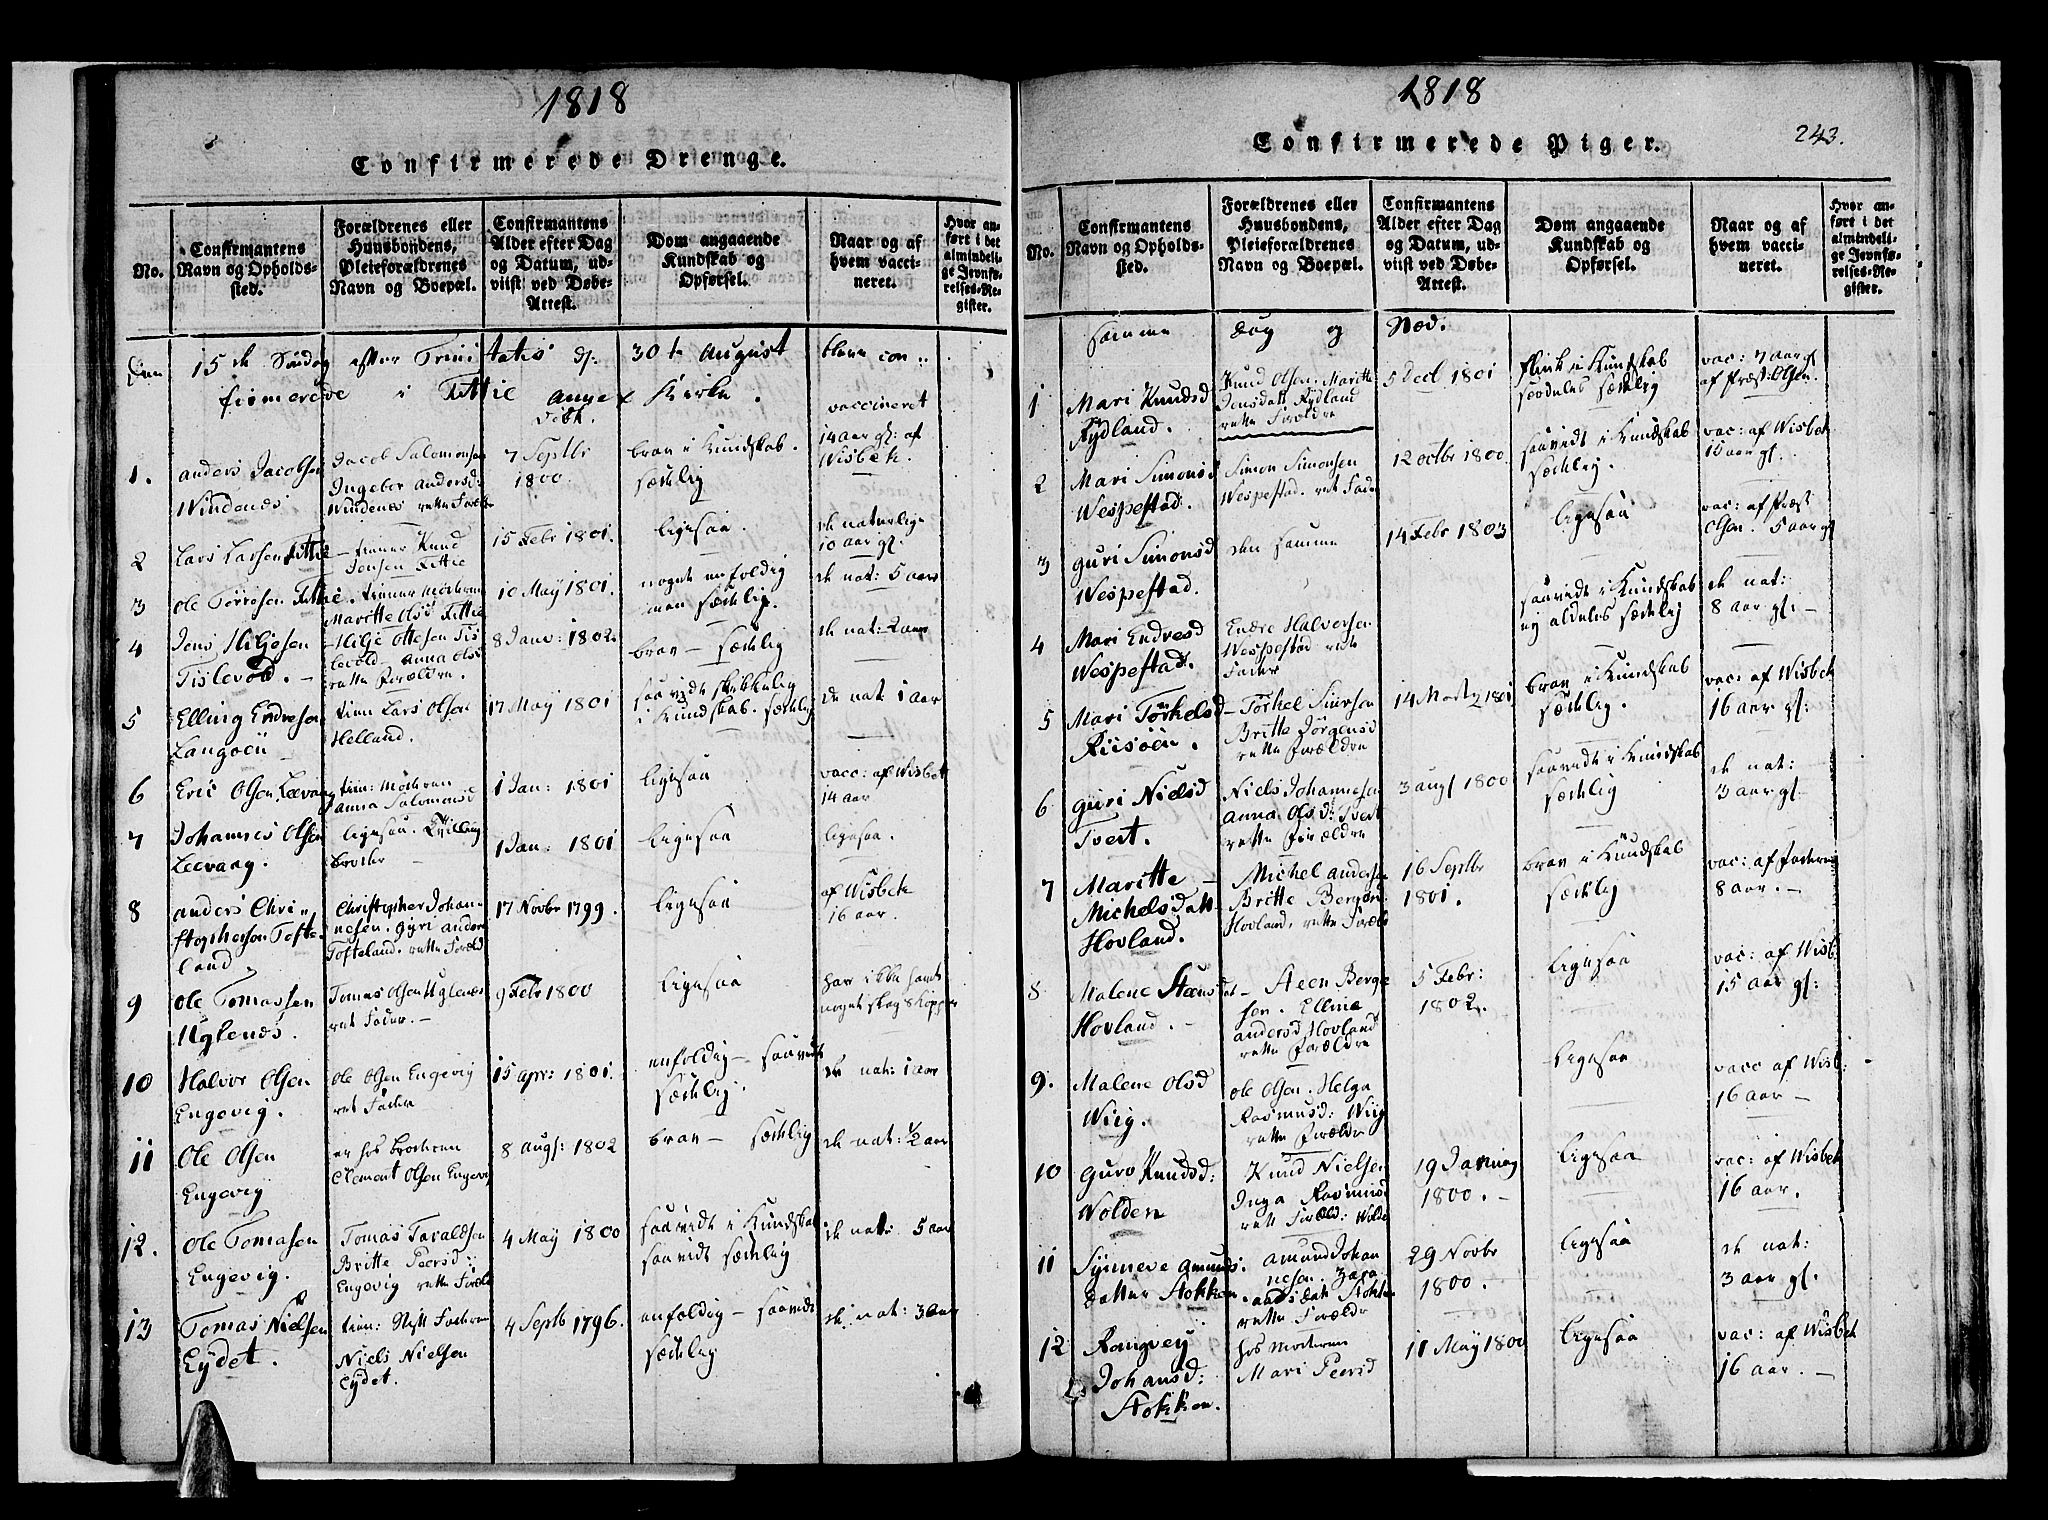 1818
Confirmerede Drenge.
No.
Confirmantens
Navn og Opholds-
sted.
Forældrenes eller
Huusbondens,
Pleieforældrenes
Navn og Boepæl.
Confirmantens
Alder efter Dag
og Datum, ud-
viist ved Døbe-
Attest.
Dom angaaende
Kundskab og
Opførsel.
Naar og af
hvem vacci-
neret.
Hvor an-
ført i det
almindeli-
ge Jevnfø-
relses-Re-
gister.
Den 15de Søndag efter Trinitatis d: 30te August bleve con:
firmerede i Fittie Kirke.
1.
anders Jacobsen
Windenæs
Jacob Salomonsen
Ingebor andersd:
Windenæs rette Forældre
7 Septbr
1800.
brav i Kundskab.
sædelig
vaccineret
14 aar gl: af
Wisbek.
2
Lars Larsen Fittie
tienner Knud
Jensen Fittie
15 Febr 1801.
ligesaa.
de naturlige
10 aar gl.
3
Ole Tørresen Fittie.
tienner Moderen
Maritte Olsd Fittie
10 May 1801.
noget enfoldig
men sædelig.
de nat: 5 aar
4
Jens Hiljesen
Tislevold. -
Hilje Ottesen Tis
levold - Anna Olsd
rette Forældre.
8 Janv: 1802.
brav - sædelig
de nat: 2 aar
5
Elling Endresen
Langøen
tien Lars Olsen
Helland.
17 May 1801
saavidt skikkelig
i Kundskab. sædelig
de nat: 1 aar
6
Eric Olsen Leevaag
tien: Moderen
anna Salomonsd
1 Jan: 1801
ligesaa
vacc: af Wisbek
14 aar
7
Johannes Olsen
Leevaag.
ligesaa. Tvilling
broder -
1 Jan: 1801
ligesaa
ligesaa.
8
anders Chri-
stophersen Tofte-
land.
Christopher Johan-
nesen. Gyri anders
Tofteland. rette Foræld
17 Novbr 1799.
ligesaa
af Wisbek
16 aar.
9
Ole Tomassen
Uglenæs.
Tomas Olsen Uglenæs
ret Fader. -
9 Febr 1800
ligesaa
har ikke havt
noget slags Kopper
10
Halvor Olsen
Engevig.
Ole Olsen Engevig
ret Fader
15 apr: 1801.
enfoldig - saavidt
sædelig.
de nat: 1 aar
11
Ole Olsen
Engevig
er hos broderen
Clement Olsen Engevig
8 augs: 1802
brav - sædelig
de nat: 1/2 aar
12.
Ole Tomasen
Engevig.
Tomas Taraldsen
Britte Peersd
Engevig rette Foræld
4 May 1800
saavidt i Kundskab
saavidt sædelig
de nat: 5 aar
13
Tomas Nielsen
Eydet.
tien: Stiff Faderen
Niels Nielsen
Eydet.
4 Septb 1796.
enfoldig - saavidt
sædelig
de nat: 3 aar
1818
243.
Confirmerede Piger.
No.
Confirmantens
Navn og Opholds-
sted.
Forældrenes eller
Huusbondens,
Pleieforældrenes
Navn og Boepæl.
Confirmantens
Alder efter Dag
og Datum, ud-
viist ved Døbe-
Attest.
Dom angaaende
Kundskab og
Opførsel.
Naar og af
hvem vacci-
neret.
Hvor an-
ført i det
almindeli-
ge Jevnfø-
relses-Re-
gister.
samme Dag og Sted.
1
Mari Knudsd
Rydland.
Knud Olsen. Maritte
Jensdatt Rydland
rette Forældre
5 Decl 1801
flink i Kundskab
særdeles sædelig
vac: 7 aar gl
af Præst: Olsen.
2
Mari Simonsd
Wespestad.
Simon Simonsen
Wespestad. ret Fader
12 octbr 1800.
saavidt i Kundskab
sædelig.
vac: af Wisbek
16 aar gl.
3
Guri Simonsd
Wespestad.
den samme
14 Febr 1803
ligesaa
vac: af Præst
Olsen. 5 aar gl
4
Mari Endresd
Wespestad.
Endre Halversen
Wespestad ret
Fader
saavidt i Kundskab
ey aldeles sædelig
de nat:
8 aar gl: -
5
Mari Törkelsd
Riisøen.
Torkel Siursen
Britte Jørgensd
rette Forældre
14 Martz 1801
brav i Kundskab
sædelig.
vac: af Wisbek
16 aar gl:
6
Guri Nielsd
Tvert.
Niels Johannesen
anna Olsd: Tvert
rette Forældre
3 augs 1800
saavidt i Kundskab
sædelig
de nat:
3 aar gl -
7
Maritte -
Michelsdatt
Hovland.
Michel andersen
Britte
Hovland. rette Foræld
16 Septbr
1801.
brav i Kundskab
sædelig
vac: af Faderen
8 aar. -
8
Malene Steensdat
Hovland. -
Steen Berge
sen. Elline
andersd Hovland
rette Forældre
5 Febr:
1802.
ligesaa
vac: af Wisb.
15 aar gl:
9.
Malene Olsd
Wiig.
Ole Olsen. Helga
Rasmusd: Wiig
rette Forældre
ligesaa
vacc af Wisb:
16 aar -
10
Guro Knudsd:
Wolden
Knud Nielsen
Inga Rasmusd
rett Foræld: Wolde
19 January
1800. -
ligesaa
vac: af Wisbek
16 aar.
11
Synneve Amunds.
Datter Stokken
amund Johan
nesen. Zara
Larsdatt Stokken
rette Forældr
29 Novbr
1800.
ligesaa
de nat:
3 aar gl.
12
Rangvey
Johansd:
Stokken.
hos Moderen
Mari Peersd
11 May 1800
ligesaa
vac: af Wisbek
16 aar. -